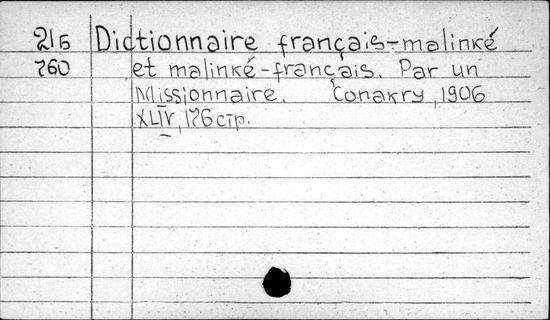 215 Dictionnaire français-malinké
760 et malinké-français. Par un
Missionnaire. Conakry, 1906
XLIV, 176 стр.